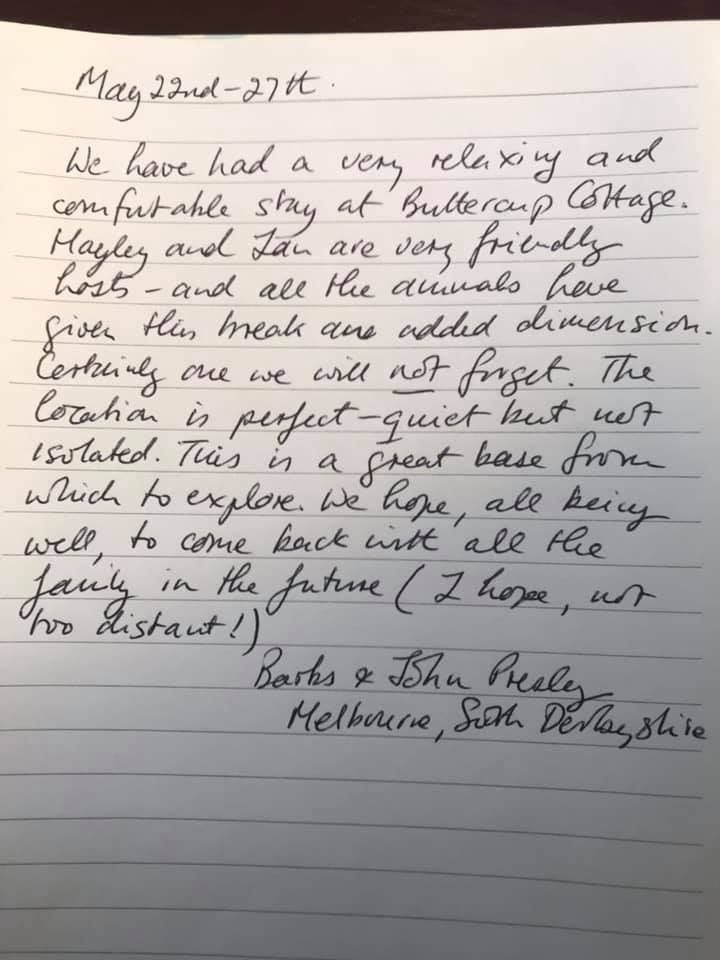 May 22nd - 27th.
We have had a very relaxing and
comfortable stay at Buttercup Cottage.
Hayley and Ian are very friendly
hosts - and all the animals have
given this break an added dimension.
Certainly one we will not forget. The
location is perfect - quiet but not
isolated. This is a great base from
which to explore. We hope, all being
well, to come back with all the
family in the future ( I hope, not
too distant! )
Barbs & John Presley
Melbourne, South Derbyshire